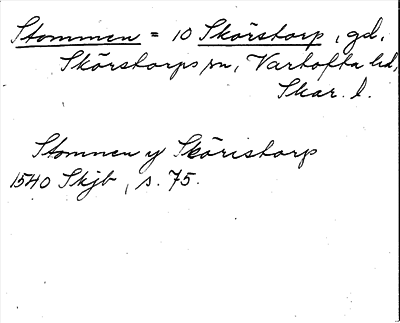 Stommen = 10 Skörstorp, gd,
Skörstorps sn, Vartofta hd,
Skar. l.
Stomnen y Sköristorp
1540 Skjb, s. 75.